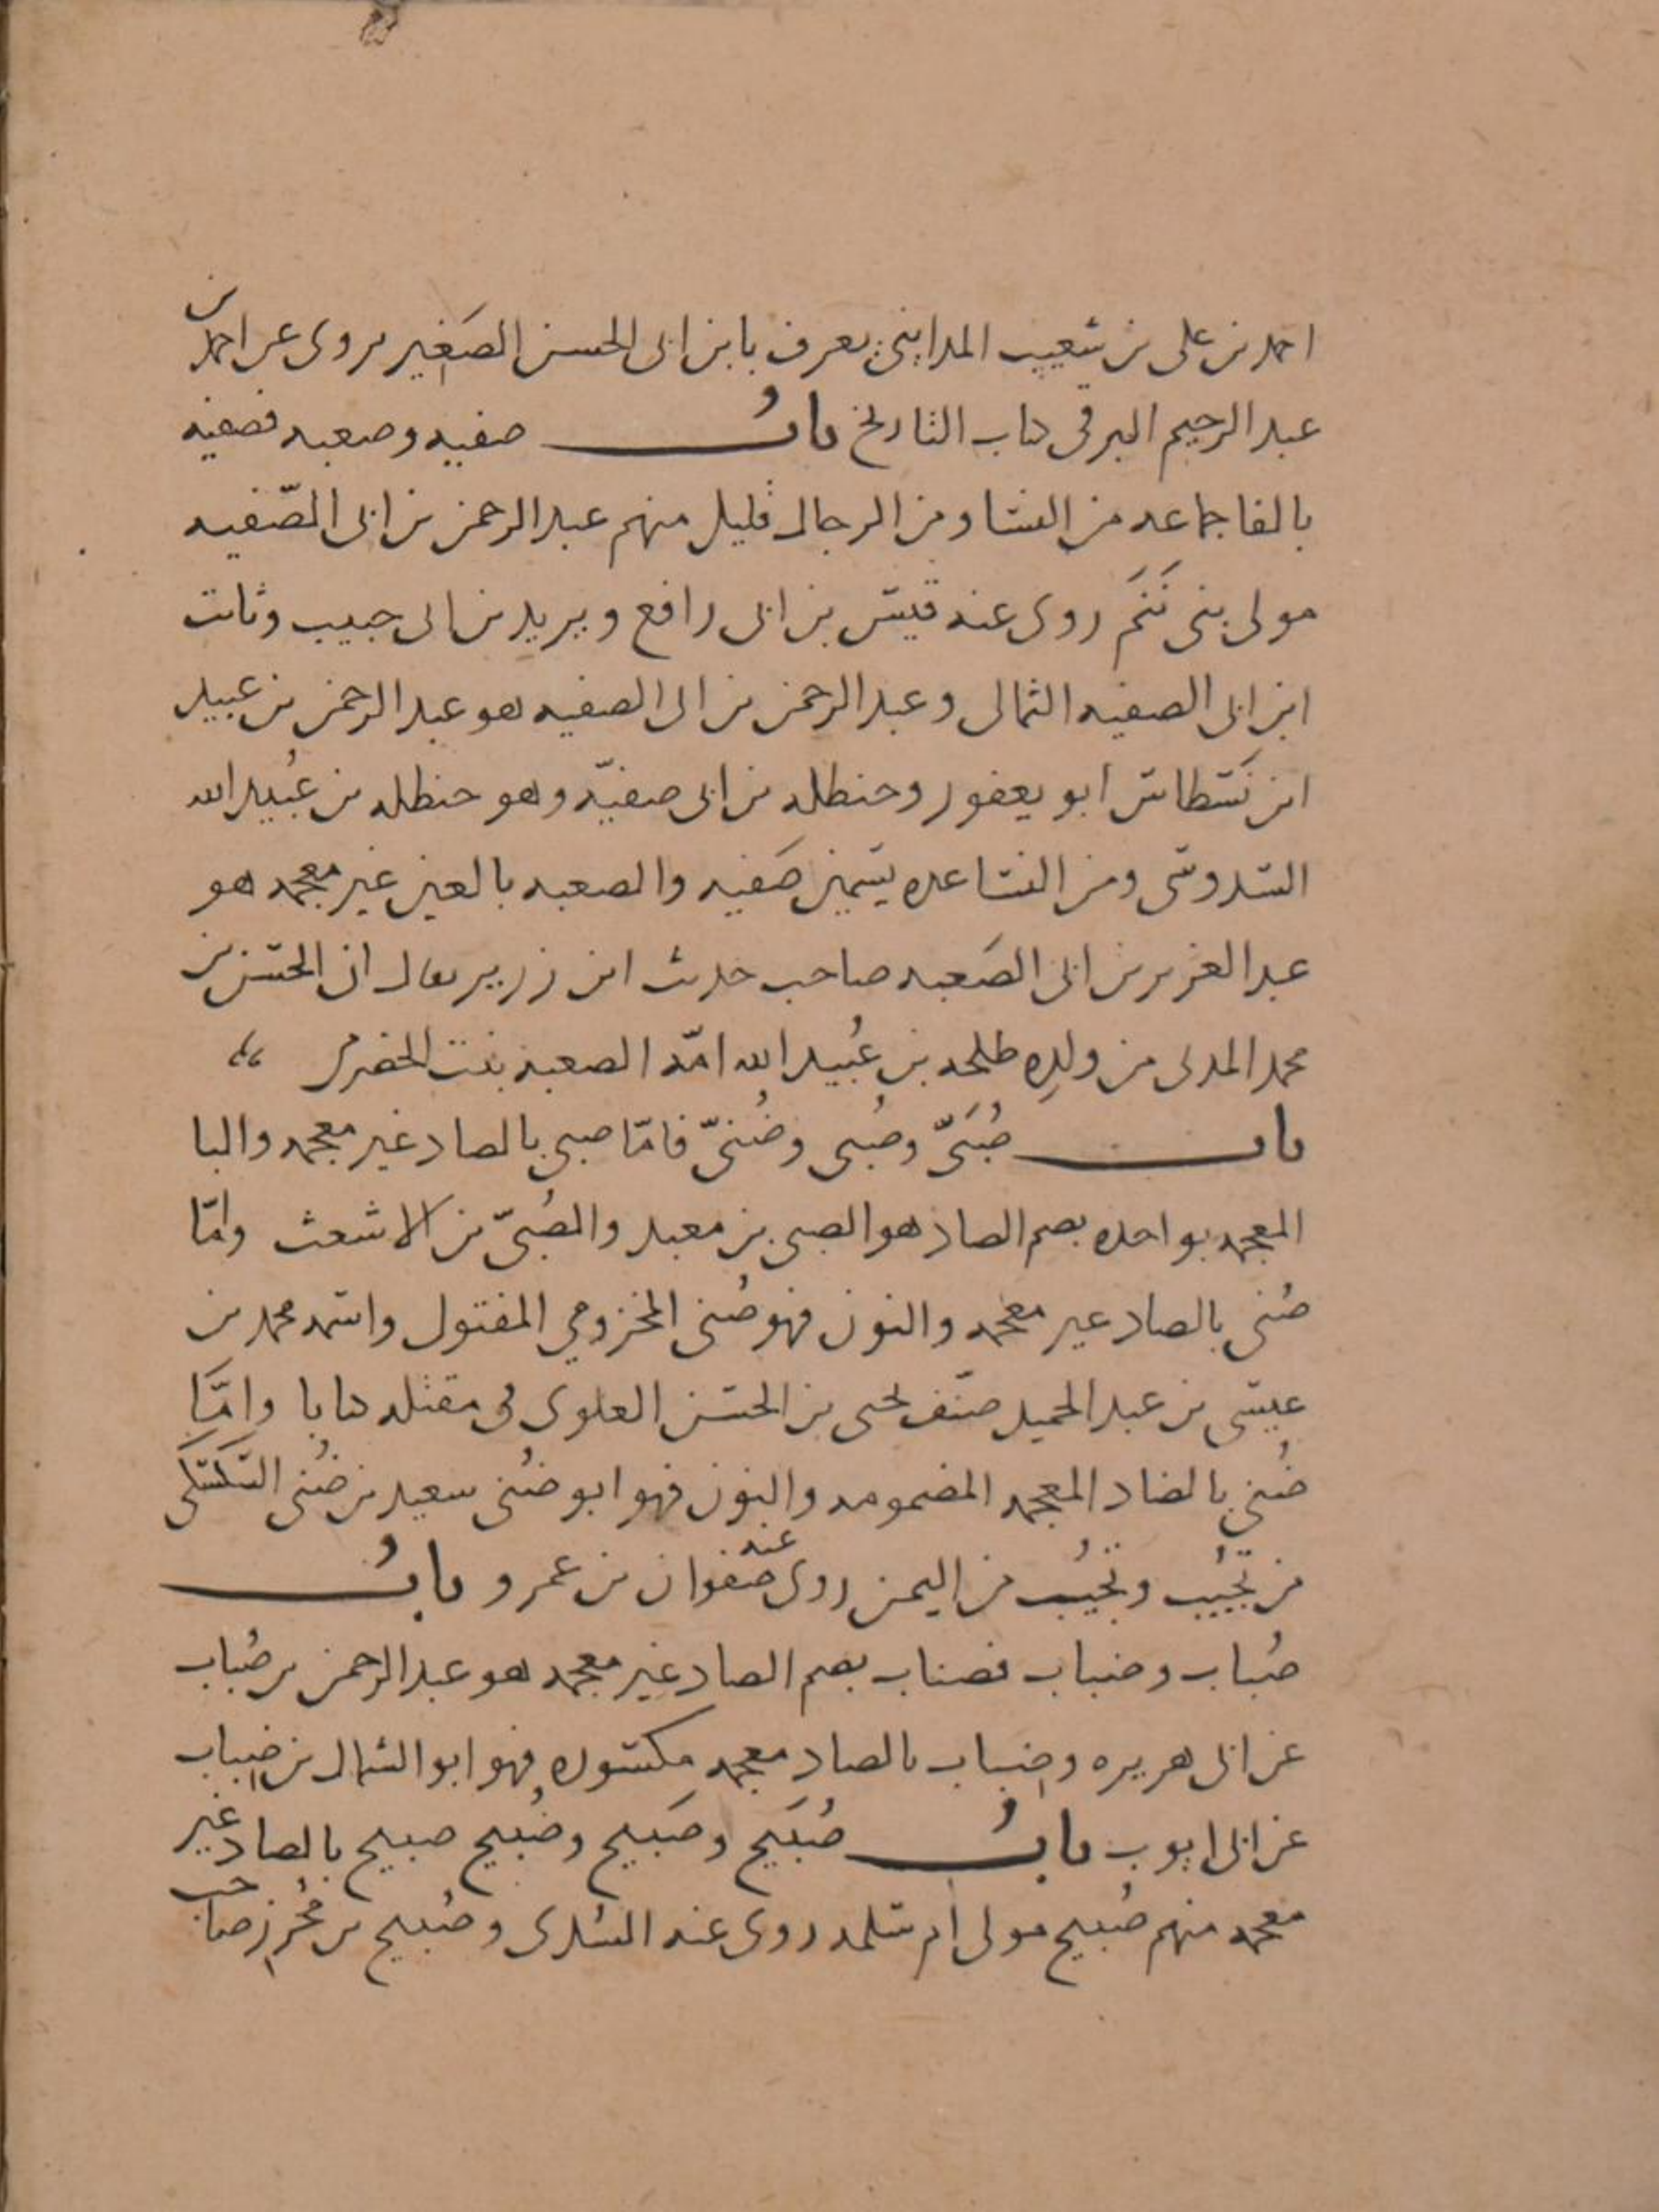 احمد بن على بن شعيب المدايني يعرف بابن ابى الحسن الصَغير يروى عن احمد بن
عبد الرحيم البرقى كتاب التاريخ بابُ صفيه وصعبه فصفيه
بالفا جماعه من النسا ومن الرجال قليل منهم عبد الرحمن بن ابى الصّفيه
مولى بنى روى عنه قيس بن ابى رافع ويزيد بن ابى حبيب وثابت
ابن ابى الصفيه الثمالى وعبد الرحمن بن ابى الصفيه هو عبد الرحمن بن عبيد
ابن نسطاس ابو يعفور وحنظله بن ابى صفيّه وهو حنظله بن عُبيد الله
السدوسى ومن النسا عده يتسمين صَفيه والصعبه بالعين غير معجمه هو
عبد العزيز بن ابى الصَعبه صاحب حديث ابن زرير يقال ان الحسن بن
محمد المدنى من ولدِه طلحه بن عُبيد الله امّه الصعبه بنت الحضرمى
باب صُبَىّ وصُبى وضُنىّ فامّا صبى بالصاد غير معجمه والبا
المعجمه بواحده بضم الصاد هو الصبى بن معبد والصُبىّ بن الاشعث وامّا
صُنى بالصاد غير معجمه والنون فهو صُنى المخزومي المقتول واسمه محمد بن
عيسى بن عبد الحميد صنّف يحيى بن الحسن العلوى فى مقتله كتابا وامّا
ضُنى بالضاد المعجمه المضمومه والنون فهو ابو ضُنى سعيد بن ضُنى السَكسَكى
من تُجيب وتُجيب من اليمن روى عنه صفوان بن عمرو بابُ
صُباب وضباب فصباب بضم الصاد غير معجمه هو عبد الرحمن بن صُباب
عن ابى هريره وضِباب بالضاد معجمه مكسوره فهو ابو الشمال بن ضِباب
عن ابى ايوب بابُ صُبَيح وصَبيح وضُبيح صبيح بالصاد غير
معجمه منهم صُبيح مولى ام سلمه روى عنه السُدى وصُبيح بن مُحرِز صاحب